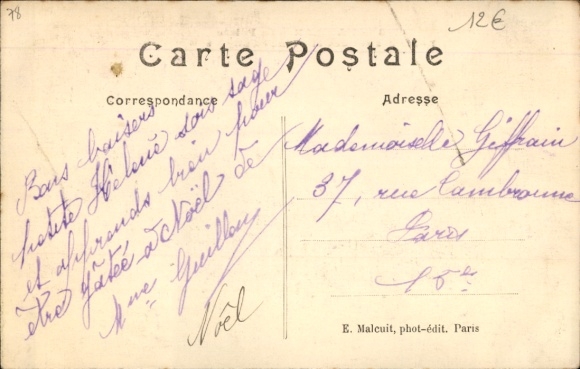 78
12€
Carte Postale
Correspondance
Adresse
Bons baisers
petite Helene sois sage
et apprends bien pour
être gâtée à Noël de
Mme Guillou
Noël
Mademoiselle Giffrain
37, rue Cambronne
Paris
15e
E. Malcuit, phot-édit. Paris